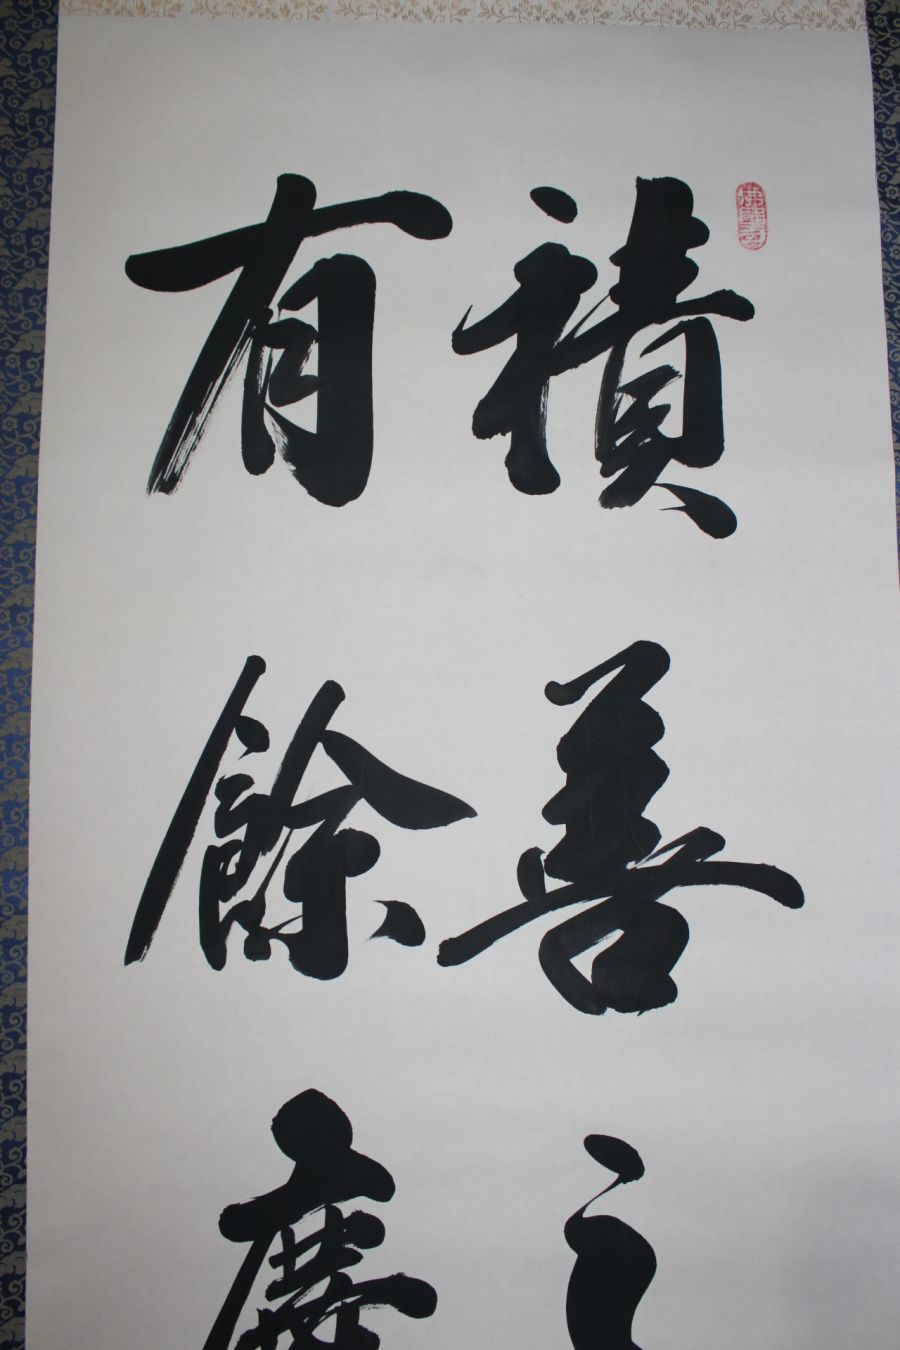 積善之
有餘慶